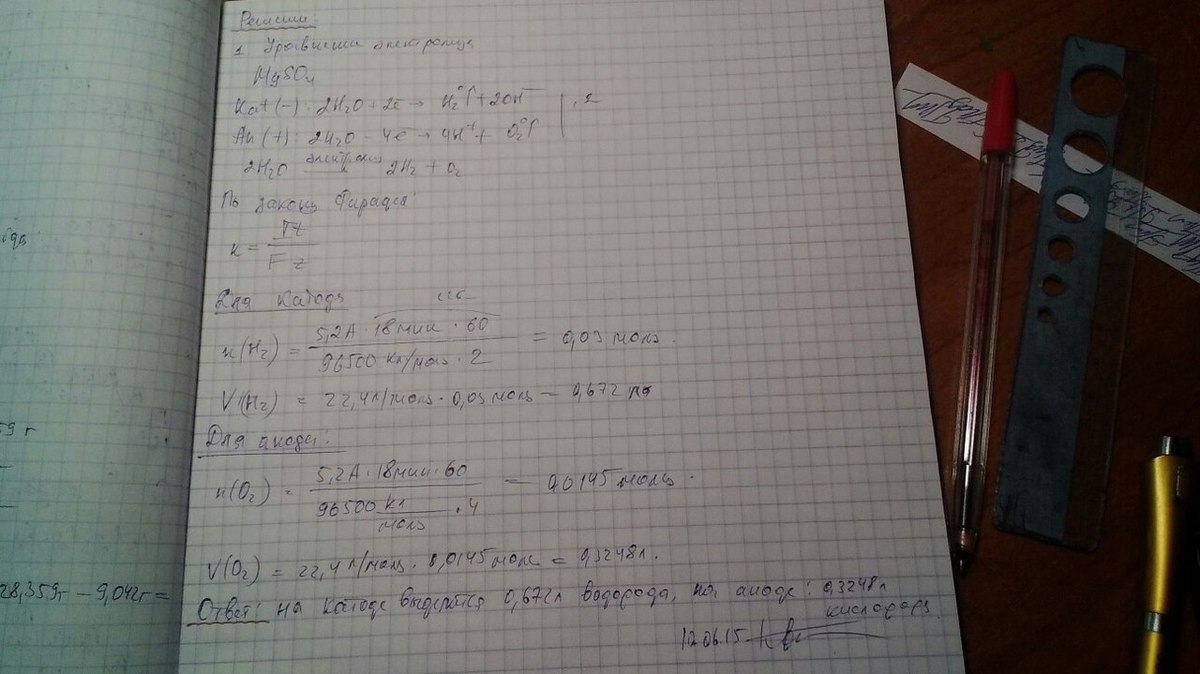 Решение:
1. Уравнение электролиза
MgSO₄
Kat (-): 2H₂O + 2e → H₂⁰↑ + 2OH⁻ | ·2
An (+): 2H₂O - 4e → 4H⁺ + O₂⁰↑
2H₂O электролиз 2H₂ + O₂
По закону Фарадея:
n = It / Fz
Для катода
n(H₂) = 5,2A · 18мин · 60 / 96500 Кл/моль · 2 = 0,03 моль.
V(H₂) = 22,4л/моль · 0,03 моль = 0,672 л
Для анода:
n(O₂) = 5,2A · 18мин · 60 / 96500 Кл/моль · 4 = 0,0145 моль.
V(O₂) = 22,4 л/моль · 0,0145 моль = 0,3248л.
Ответ: на катоде выделится 0,672л водорода, на аноде: 0,3248л
кислорода.
12.06.15
59 г
28,359г - 9,042г =